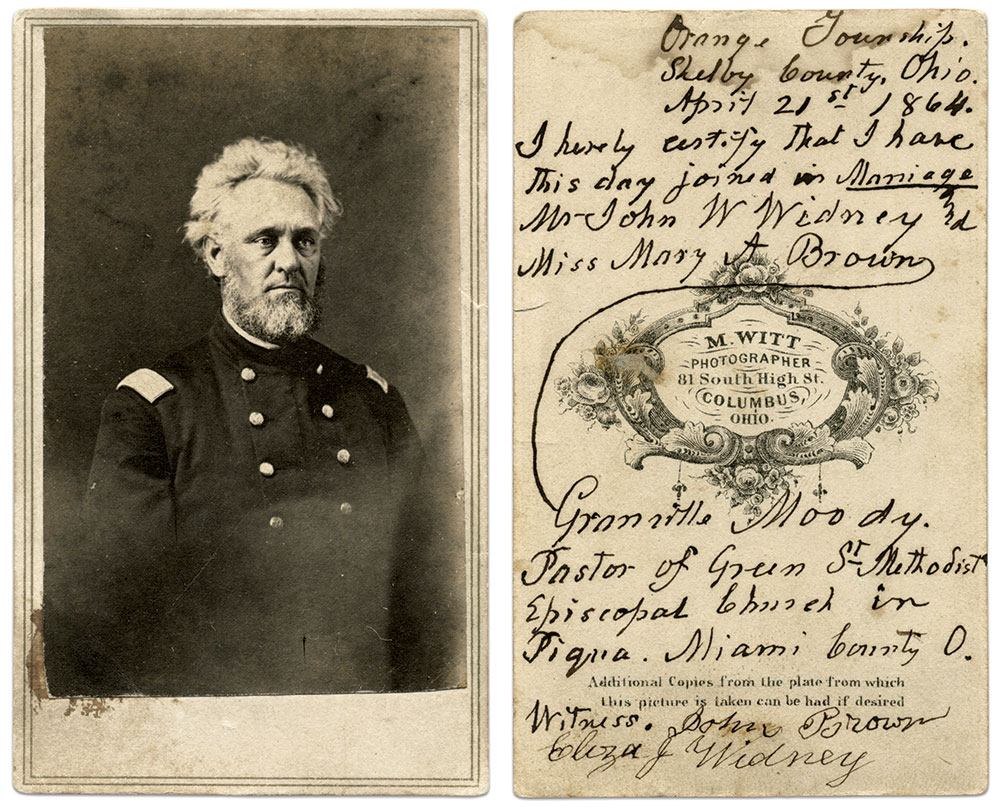 Orange Township.
Shelby County, Ohio.
April 21st 1864.
I hereby certify that I have
this day joined in Marriage
Mr John W Widney nd
Miss Mary A Brown
M. WITT
PHOTOGRAPHER
81 South High St.
COLUMBUS,
OHIO.
Granville Moody.
Pastor of Green St Methodist
Episcopal Church in
Piqua. Miami County O.
Additional Copies from the plate from which
this picture is taken can be had if desired
Witness. John Brown
Eliza J Widney